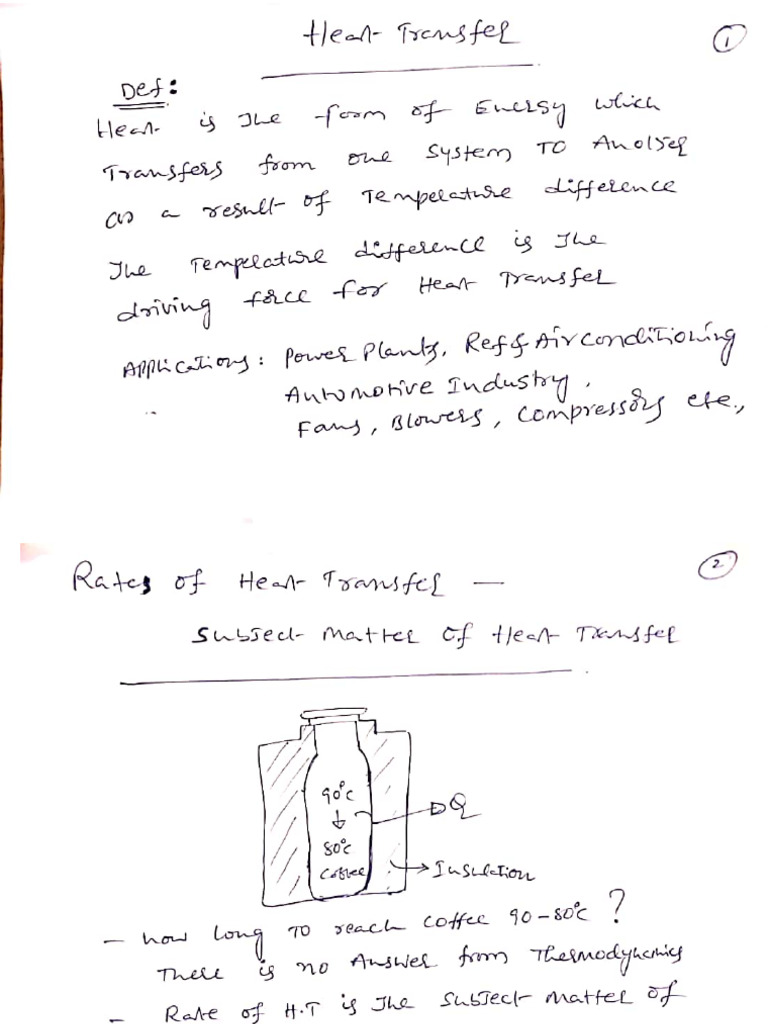 Heat Transfer
1
Def:
Heat is the form of Energy which
Transfers from one System To Another
as a result of Temperature difference
The Temperature difference is the
driving force for Heat Transfer
Applications: Power Plants, Ref & Air conditioning
Automotive Industry,
Fans, Blowers, Compressors etc.,
2
Rates of Heat Transfer —
Subject matter of Heat Transfer
90°c
80°c
coffee
Q
Insulation
- how long To reach coffee 90-80°c ?
There is no Answer from Thermodynamics
- Rate of H.T is the Subject matter of